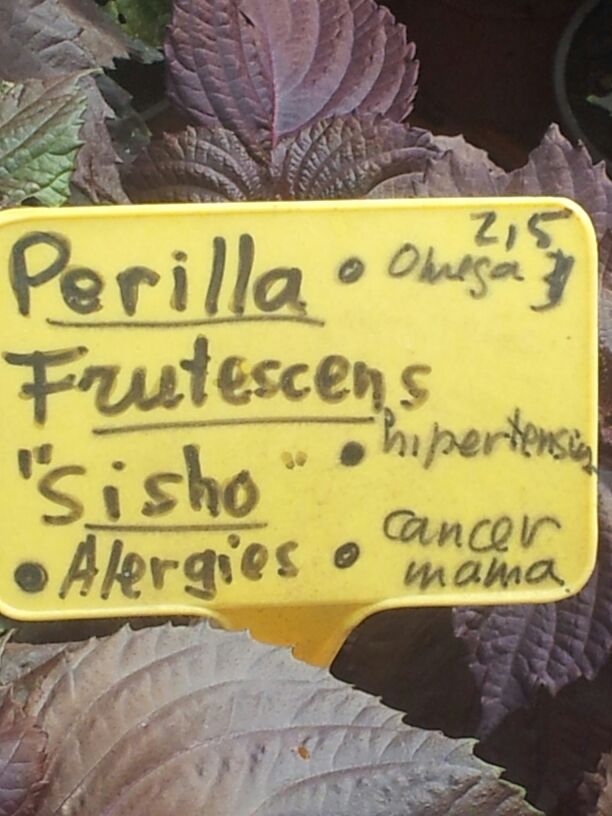 2,5
Perilla • Omega 3
Frutescens
• hipertensin
"Sisho"
• Alergies • cancer
mama